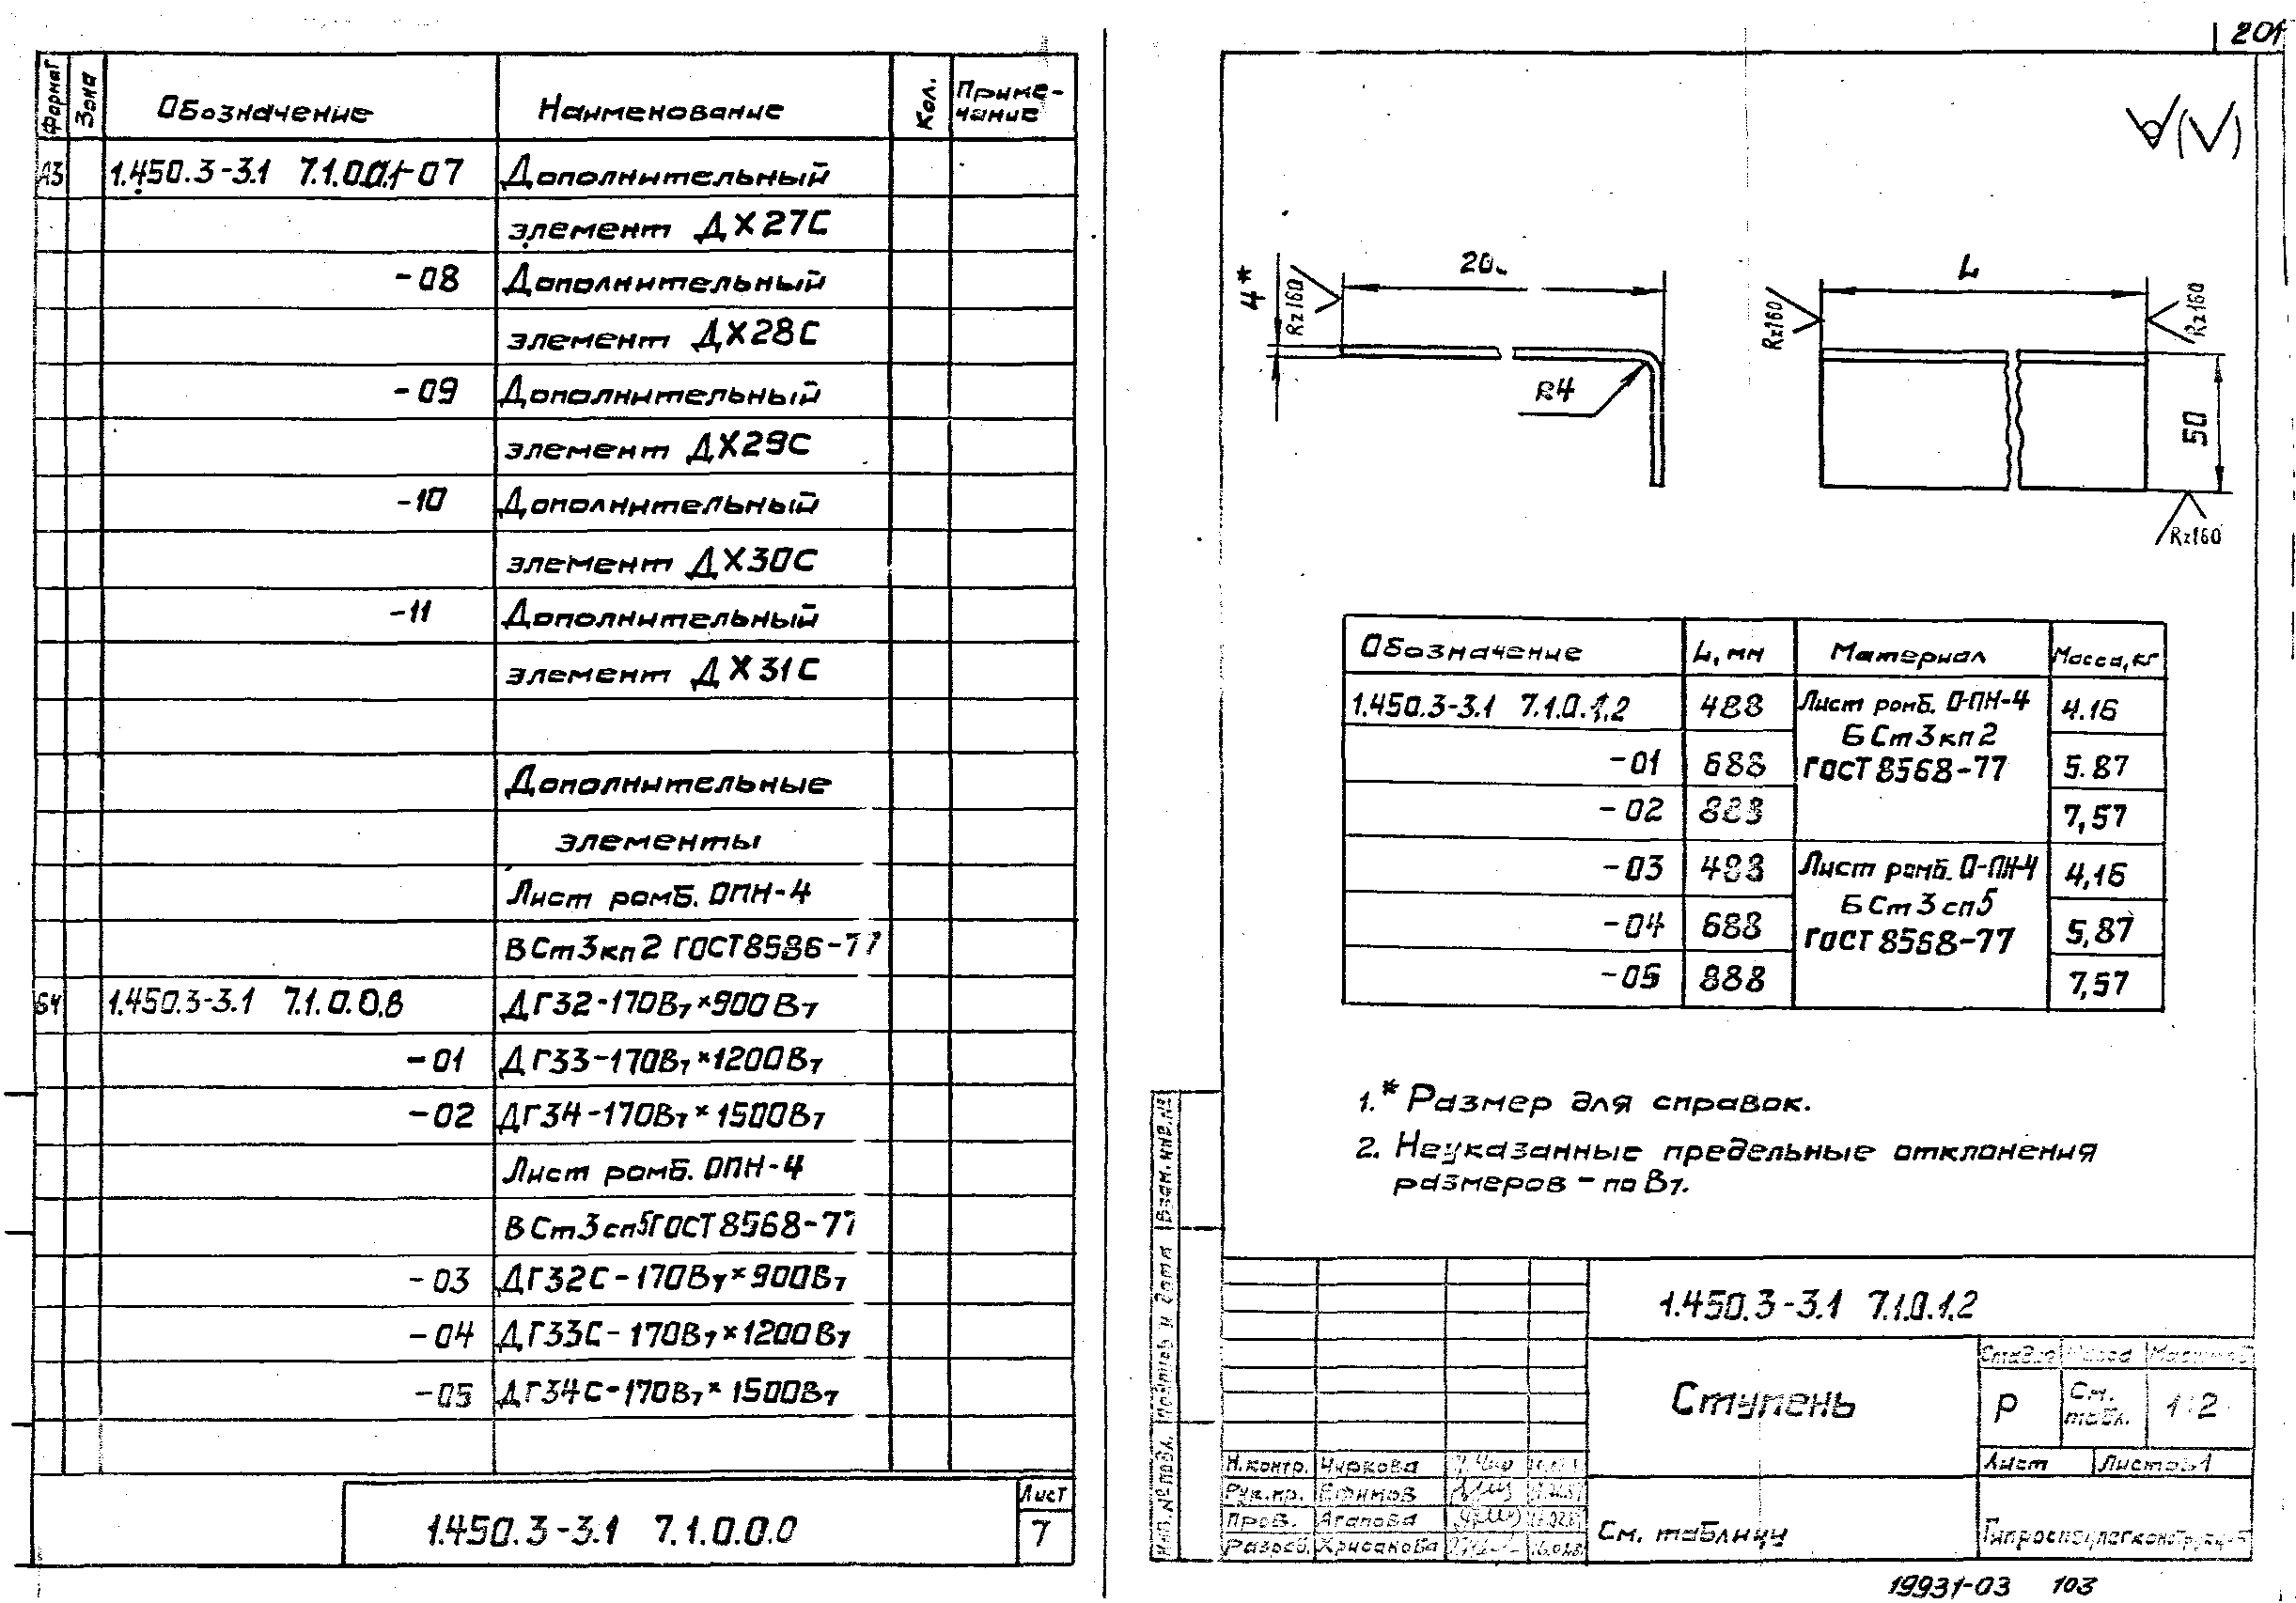 Формат Зона Обозначение Наименование Кол. Приме-
чание
А3 1.450.3-3.1 7.1.0.0.1-07 Дополнительный
элемент ДХ27С
-08 Дополнительный
элемент ДХ28С
-09 Дополнительный
элемент ДХ29С
-10 Дополнительный
элемент ДХ30С
-11 Дополнительный
элемент ДХ31С
Дополнительные
элементы
Лист ромб. ОПН-4
ВСт3кп2 ГОСТ8586-77
БЧ 1.450.3-3.1 7.1.0.0.8 ДГ32-170В7×900В7
-01 ДГ33-170В7×1200В7
-02 ДГ34-170В7×1500В7
Лист ромб. ОПН-4
ВСт3сп5ГОСТ8568-77
-03 ДГ32С-170В7×900В7
-04 ДГ33С-170В7×1200В7
-05 ДГ34С-170В7×1500В7
1.450.3-3.1 7.1.0.0.0
Лист
7
201
4*
Rz160
R4
Rz160
L
Rz160
50
Rz160
Обозначение L, мм Материал Масса, кг
1.450.3-3.1 7.1.0.1.2 488 Лист ромб. О-ПН-4 4.16
БСт3кп2
-01 688 ГОСТ8568-77 5.87
-02 888 7,57
-03 488 Лист ромб. О-ПН-4 4,16
БСт3сп5
-04 688 ГОСТ8568-77 5,87
-05 888 7,57
1.* Размер для справок.
2. Неуказанные предельные отклонения
размеров - по В7.
Взам. инв. №
Подпись и дата
Инв. № подл.
1.450.3-3.1 7.1.0.1.2
Ступень
Стадия Масса Масштаб
Р См.
табл. 1:2
Лист Листов 1
Н.контр. Чиркова
Рук.пр. Ефимов
Пров. Агапова
Разраб. Хрисанова
См. таблицу
19931-03 103